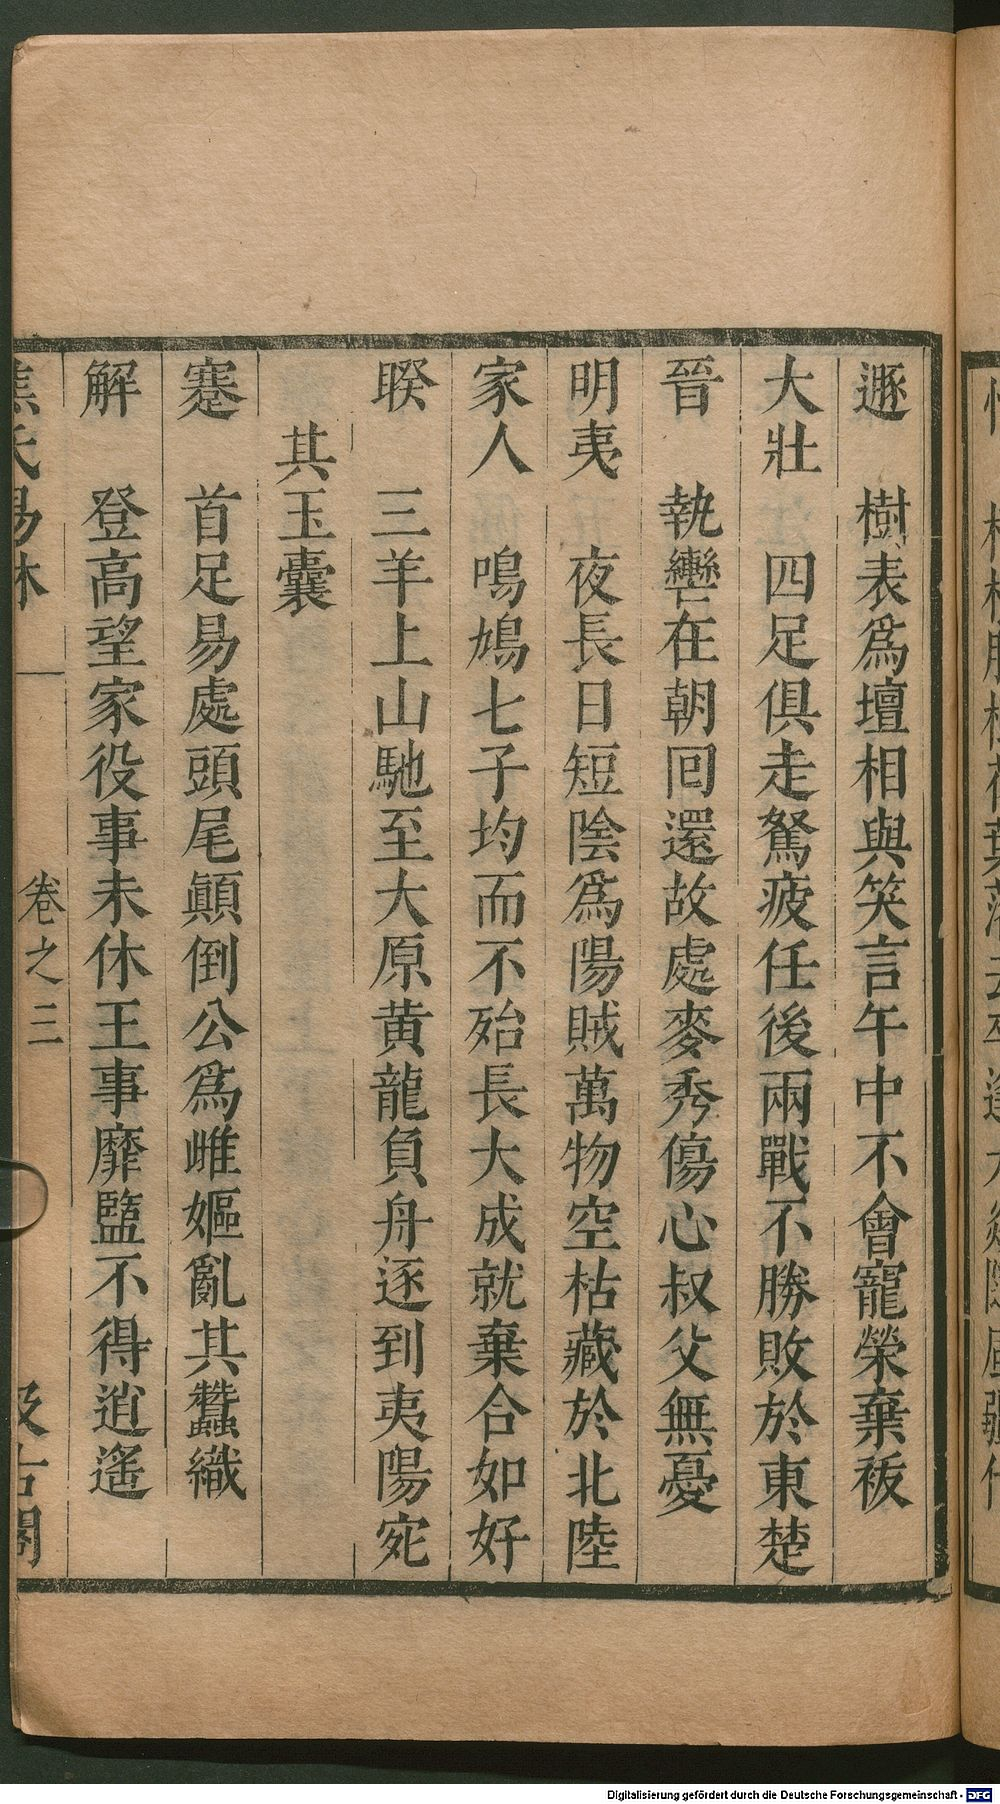 遯　樹表爲壇相與笑言午中不會寵榮棄袚
大壯　四足俱走駑疲任後兩戰不勝敗於東楚
晉　執轡在朝回還故處麥秀傷心叔父無憂
明夷　夜長日短陰爲陽賊萬物空枯藏於北陸
家人　鳴鳩七子均而不殆長大成就棄合如好
睽　三羊上山馳至大原黄龍負舟逐到夷陽宛
其玉囊
蹇　首足易處頭尾顚倒公爲雌嫗亂其蠶織
解　登高望家役事未休王事靡盬不得逍遙
焦氏易林　卷之三　汲古閣
Digitalisierung gefördert durch die Deutsche Forschungsgemeinschaft - DFG